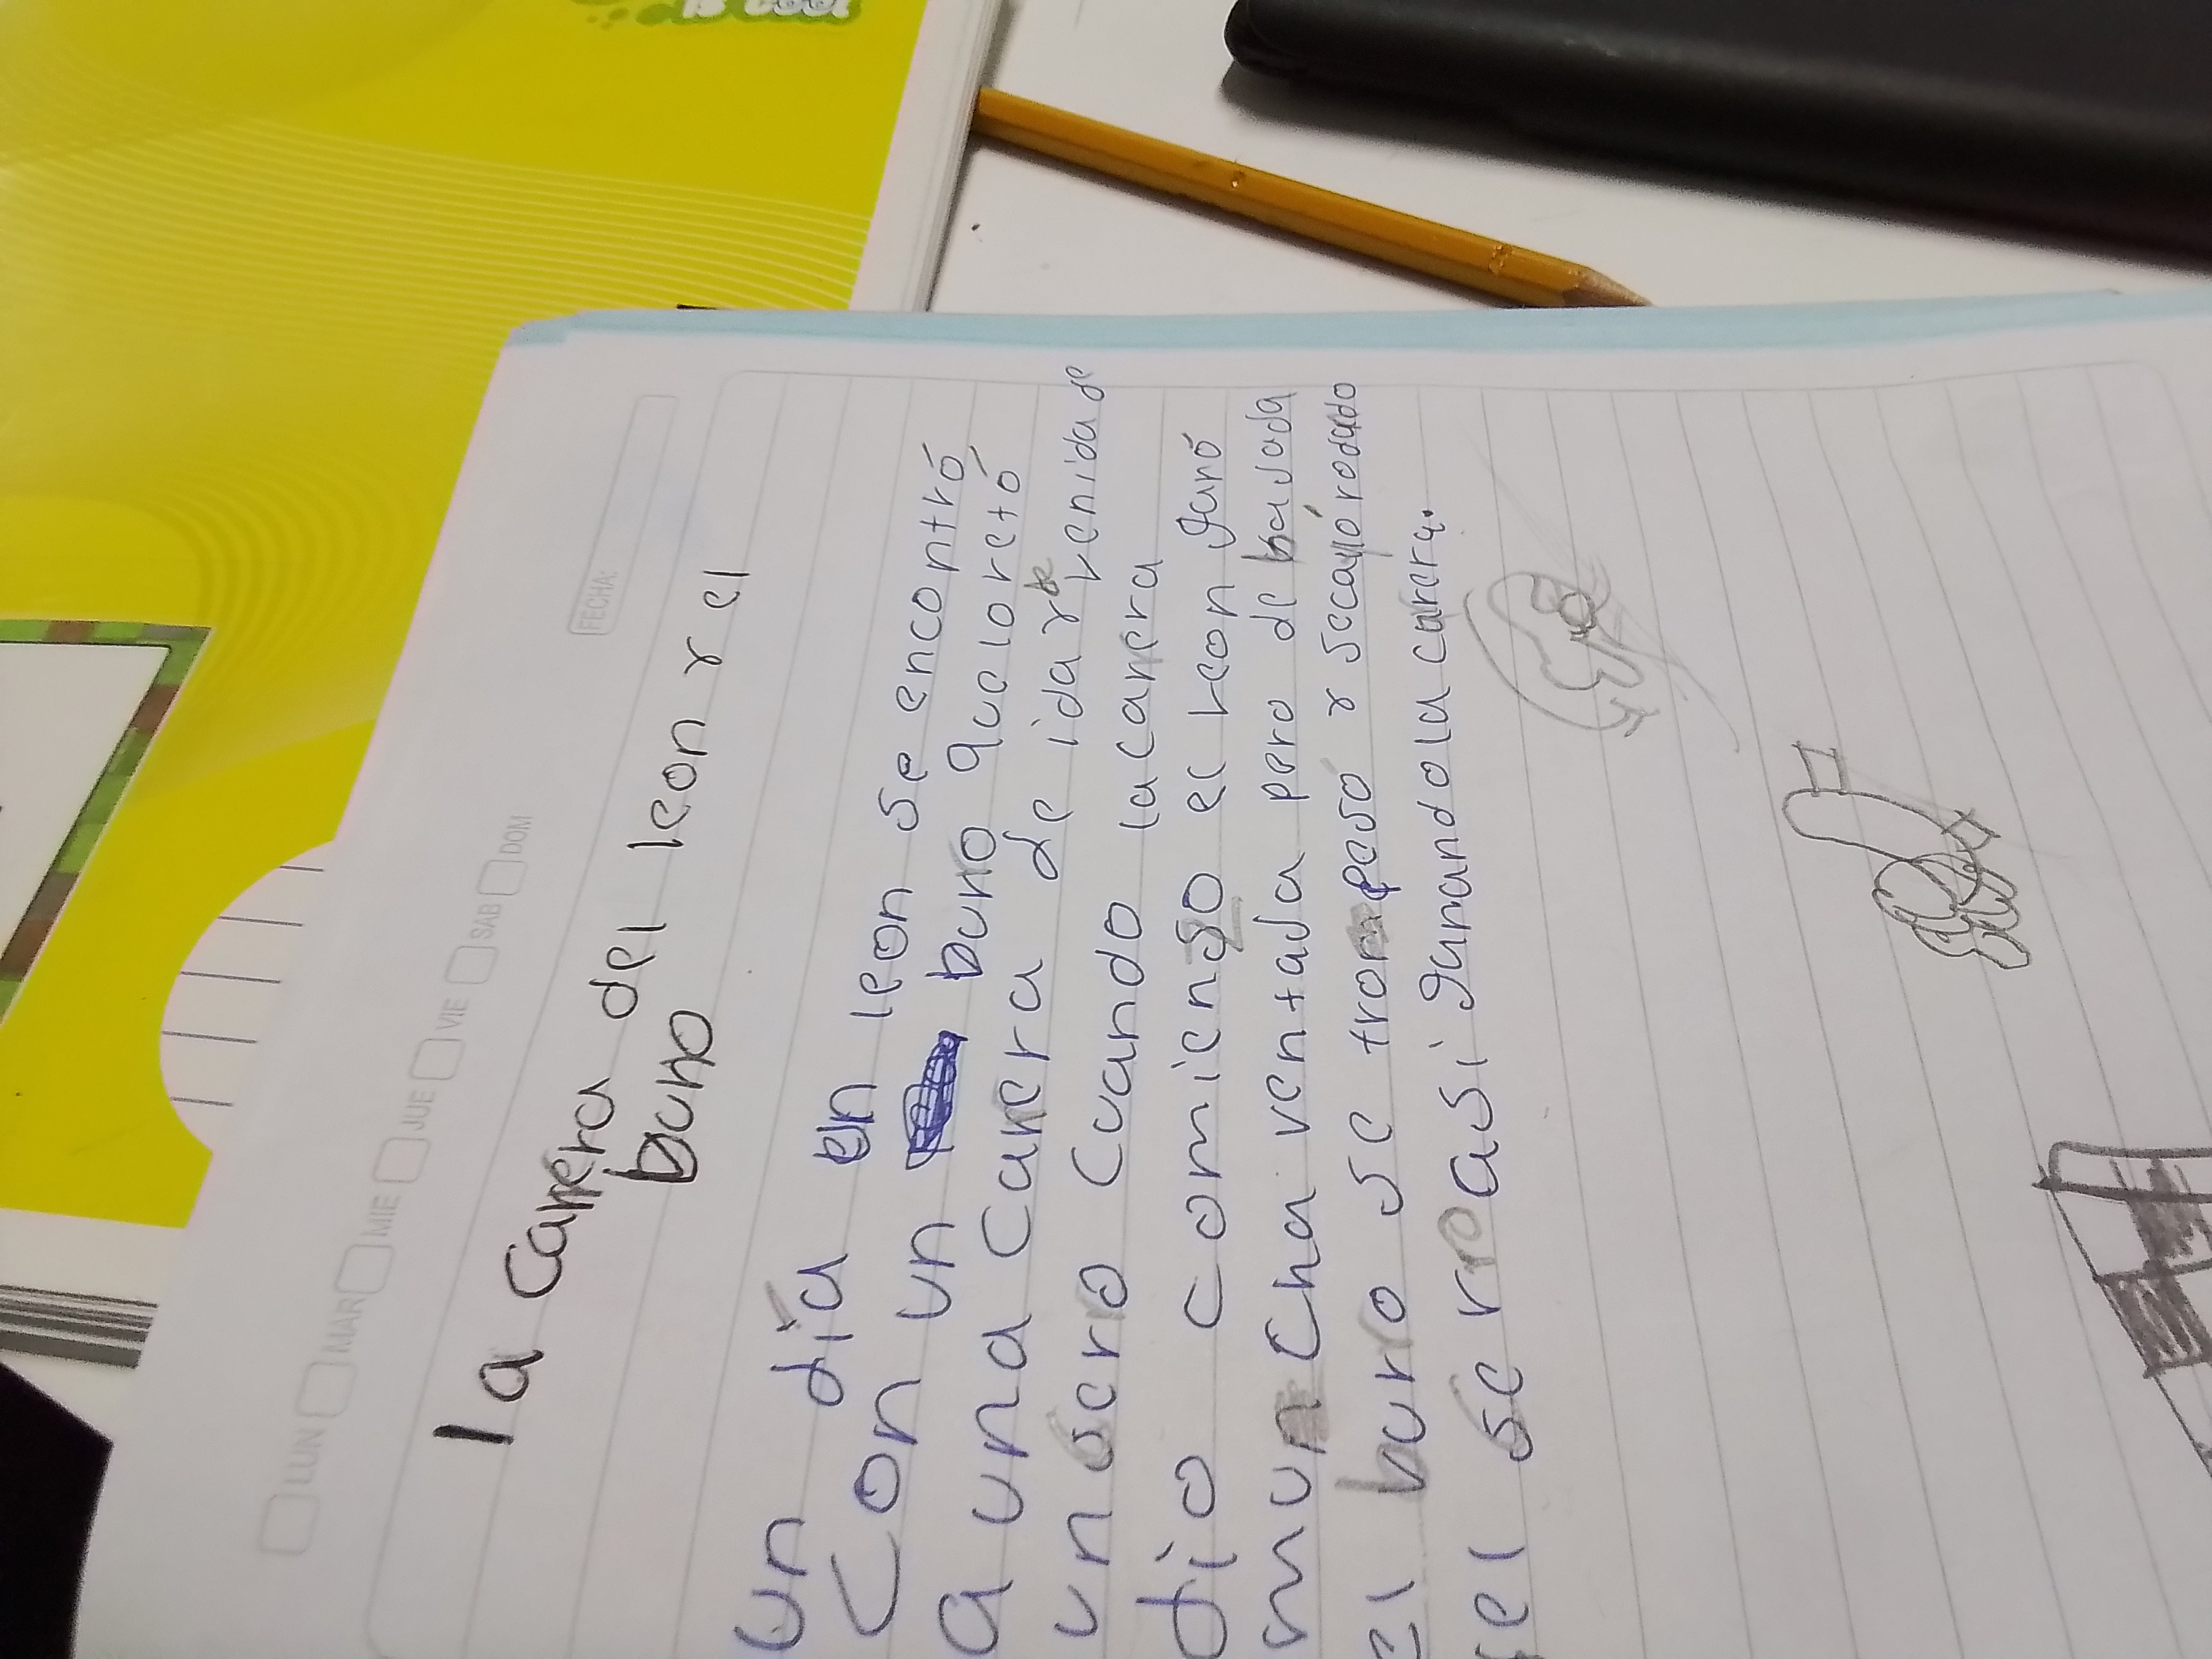 is cool
FECHA:
LUN MAR MIE JUE VIE SAB DOM
la carrera del leon y el
burro
un día un leon se encontró
con un burro que lo retó
a una carrera de ida y venida de
un serro cuando la carrera
dio comienso el leon ganó
mucha ventaja pero de bajada
el burro se trompesó y se cayó rodado
el serro asi ganando la carera.